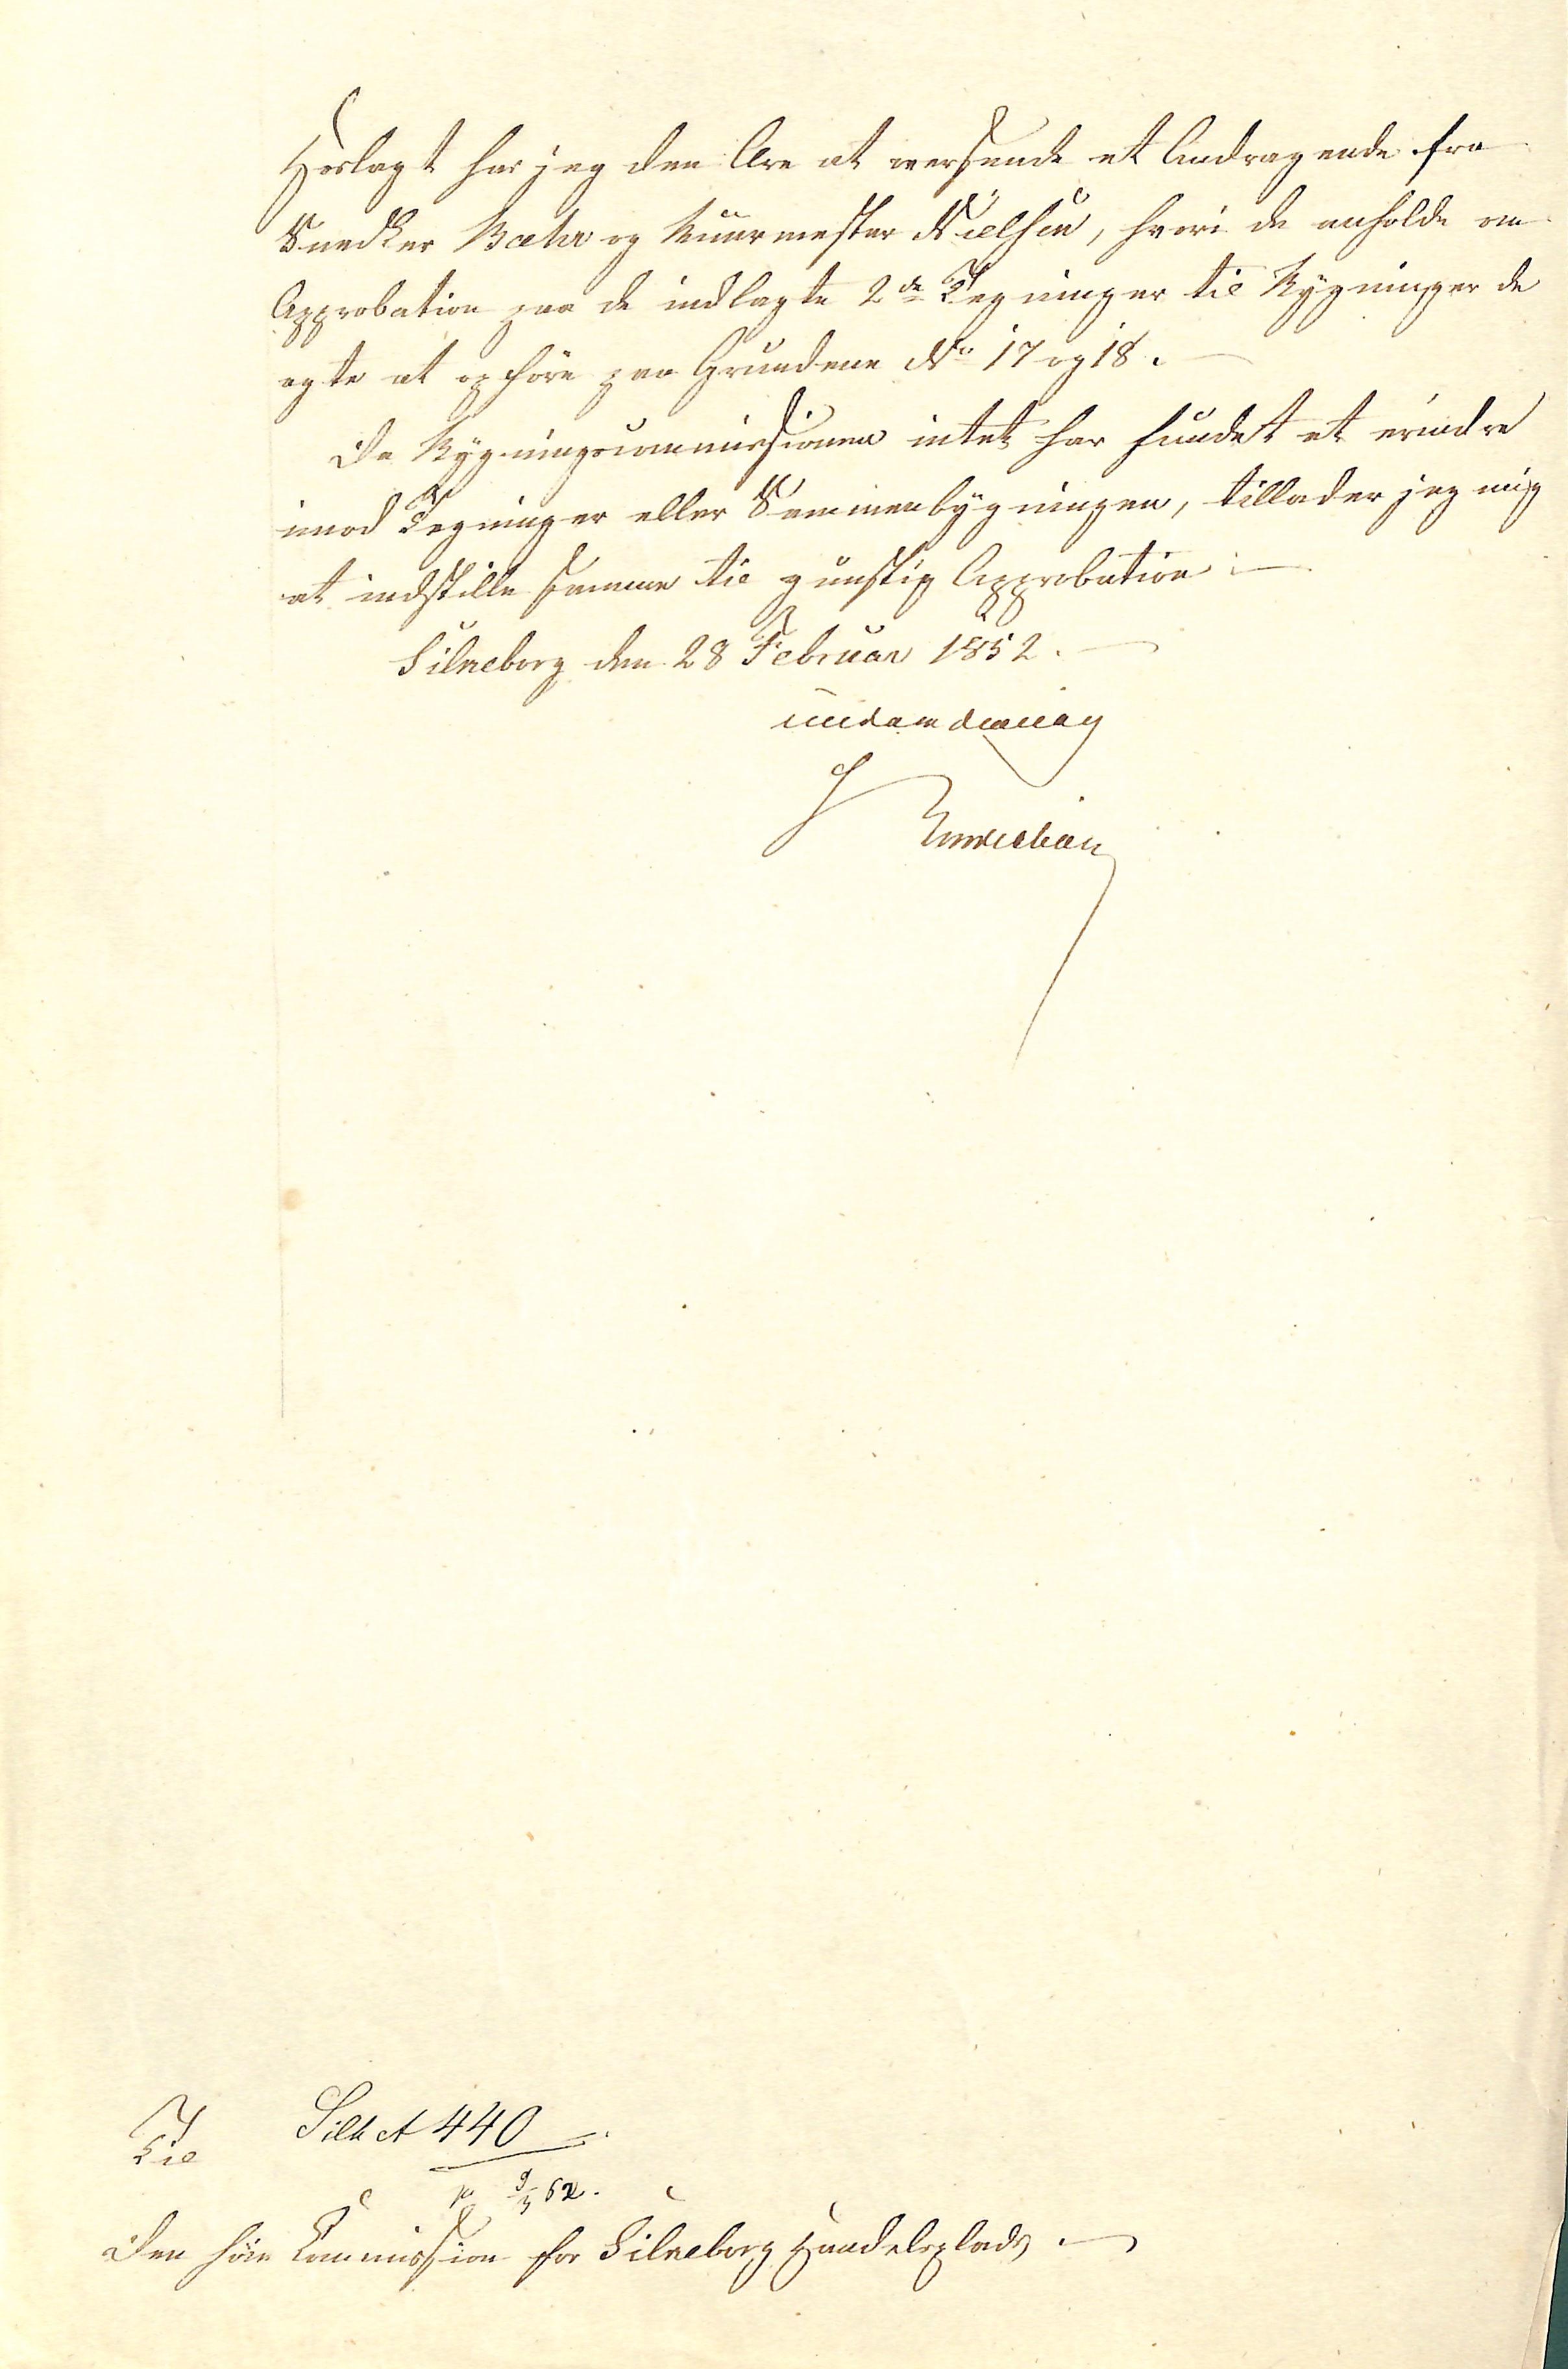 Hoslagt har jeg den Ære at oversende et Andragende fra
Snedker Bæhr og Muurmester Nielsen, hvori de anholde om
Approbation paa de indlagte 2de Tegninger til Bygninger de
agte at opføre paa Grundene No 17 og 18.
Da Bygningscommissionen intet har fundet at erindre
imod Tegninger eller Sammenbygningen, tillader jeg mig
at indstille samme til gunstig Approbation.
Silkeborg den 28 Februar 1852.
underdanig
Til
Silk A 440
9/3 52.
Den høie Commission for Silkeborg Handelsplads.